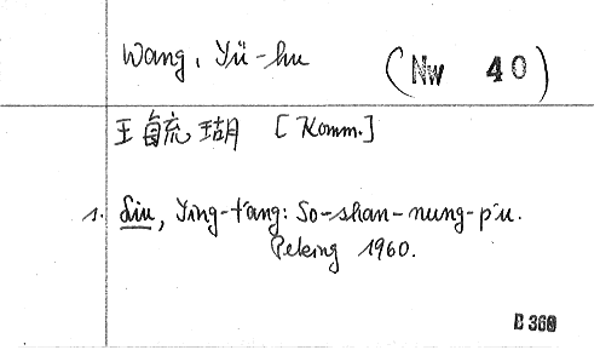 Wang, Yü-hu (Nw 40)
王毓瑚 [Komm.]
1. Liu, Ying-t'ang: So-shan-nung-p'u.
Peking 1960.
B 360